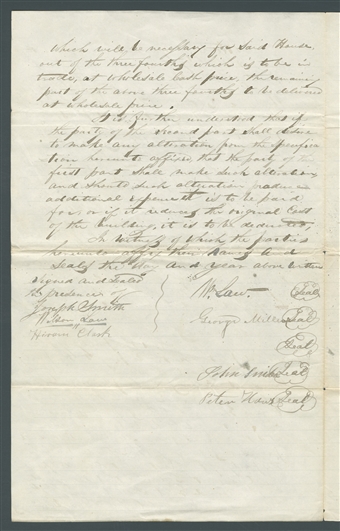 which will be necessary for said House
out of the three fourths which is to be in
trade, at wholesale Cash price, the remaining
part of the above three fourths to be delivered
at wholesale price.
It is further understood that if
the party of the second part shall desire
to make any alteration from the specifica
tion hereunto affixed, that the party of the
first part shall make such alteration
and should such alteration produce
additional expense it is to be paid
for, or if it reduces the original Cost
of the building, it is to be deducted,
In witness of which the parties
hereunto affix their hands and
Seals the day and year above written
Signed and Sealed
in presence of
Joseph Smith
Wilson Law
Hiram Clark
Wm Law. Seal
George Miller Seal
Seal
John Seal
Peter Haws Seal